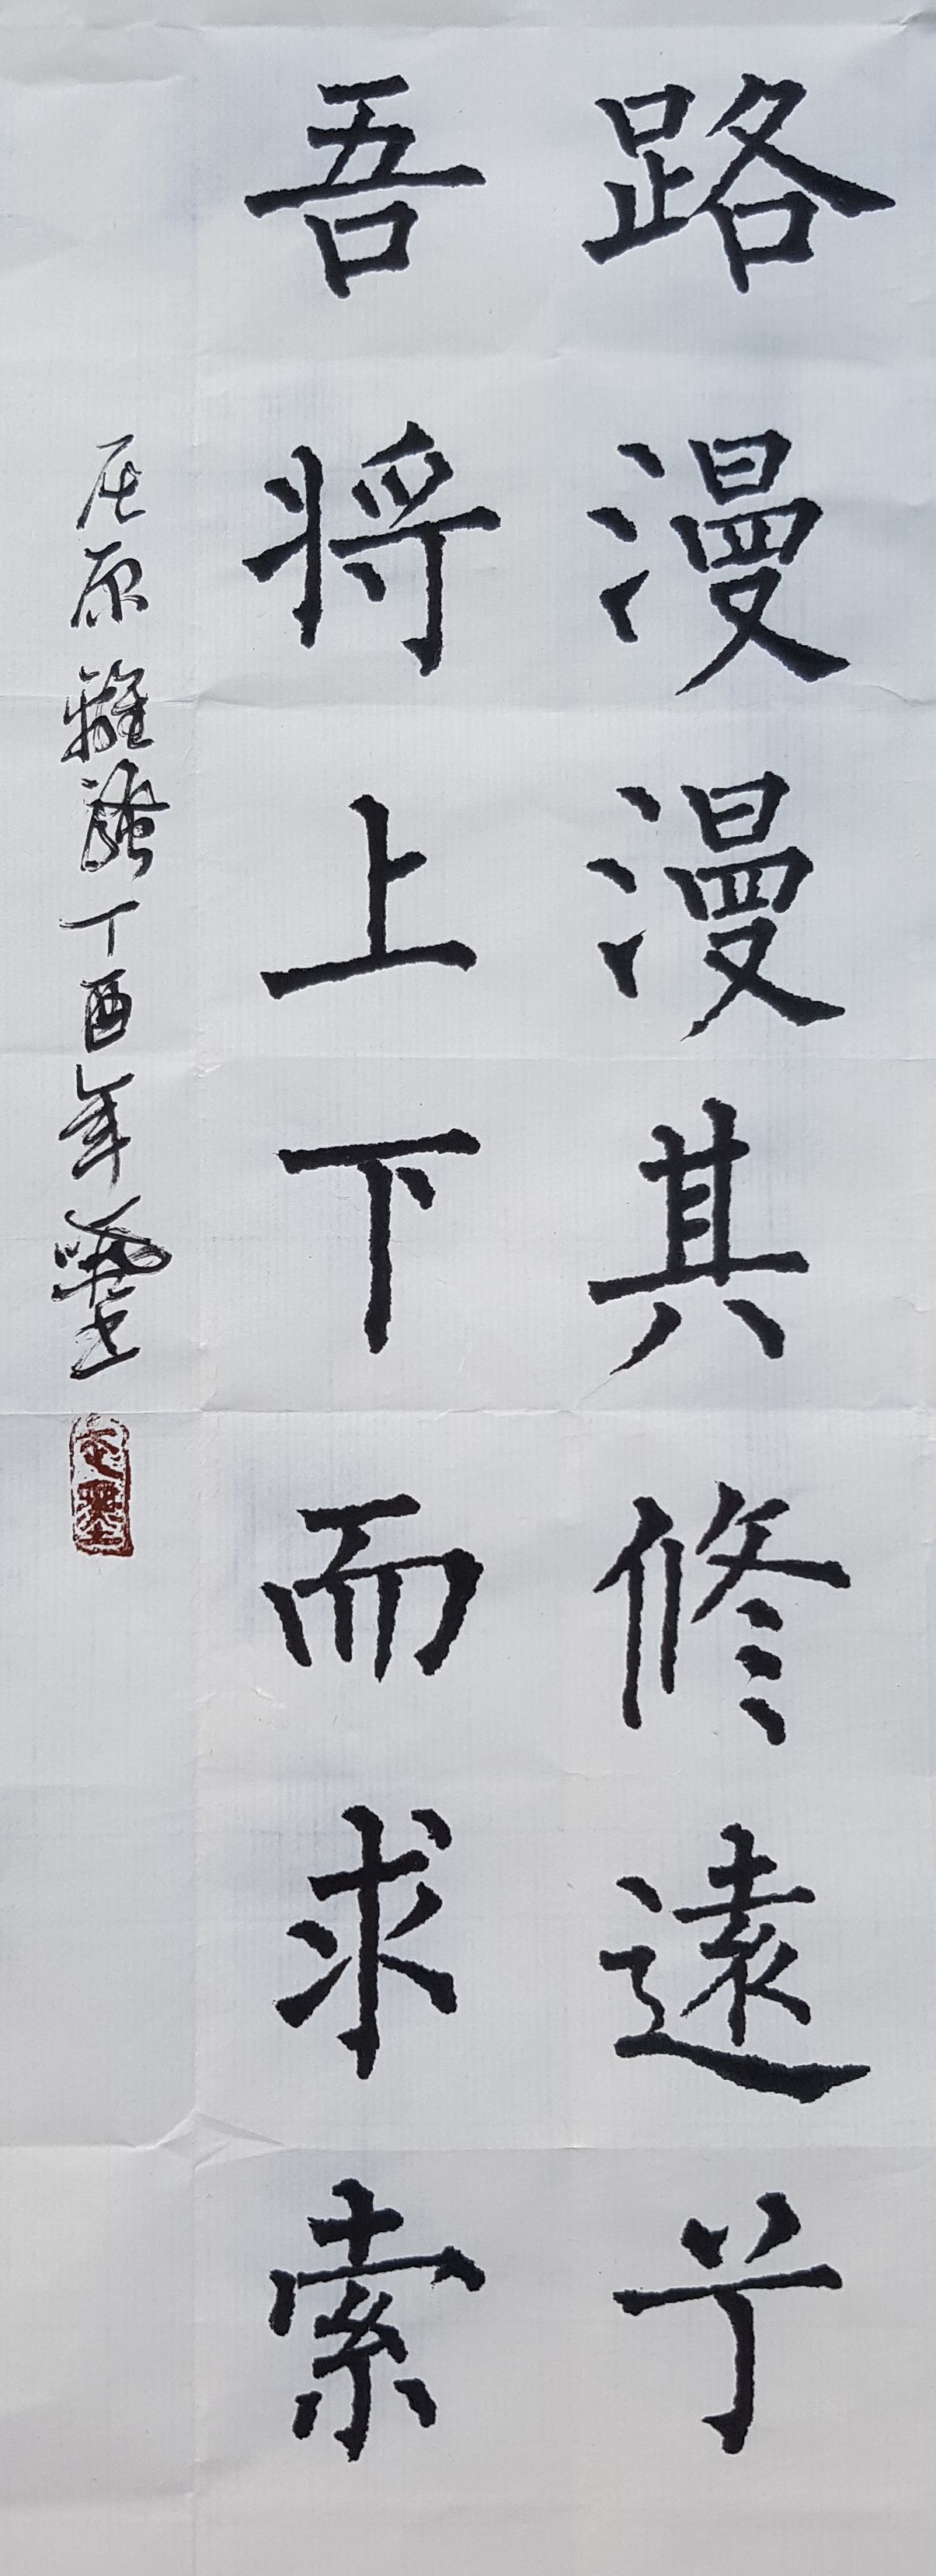 路漫漫其修遠兮
吾将上下而求索
屈原離騷丁酉年